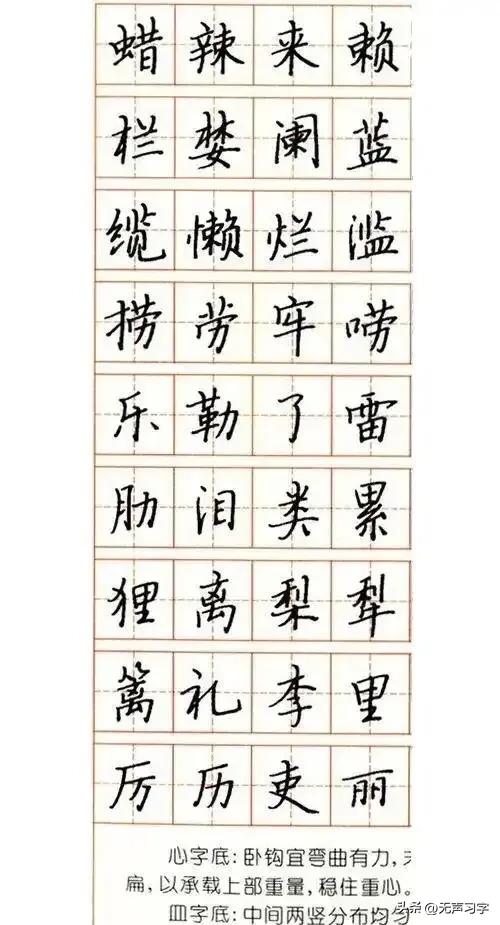 蜡辣来赖
栏婪阑蓝
缆懒烂滥
捞劳牢唠
乐勒了雷
肋泪类累
狸离梨犁
篱礼李里
厉历吏丽
心字底：卧钩宜弯曲有力，
扁，以承载上部重量，稳住重心。
皿字底：中间两竖分布均匀
头条 @无声习字